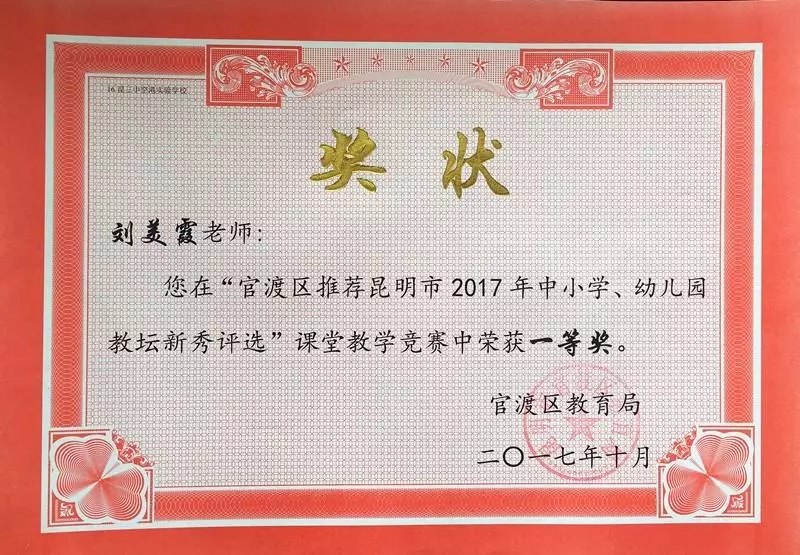 16 昆三中空港实验学校
奖状
刘美霞老师:
您在“官渡区推荐昆明市 2017 年中小学、幼儿园
教坛新秀评选”课堂教学竞赛中荣获一等奖。
官渡区教育局
二〇一七年十月